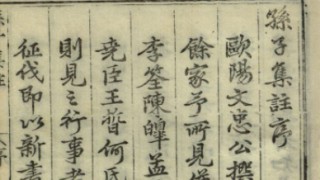 孫子集註序
歐陽文忠公撰
餘家予所見僅
李筌陳皥孟
堯臣王晳何氏
則見之行事者
征伐即以新書